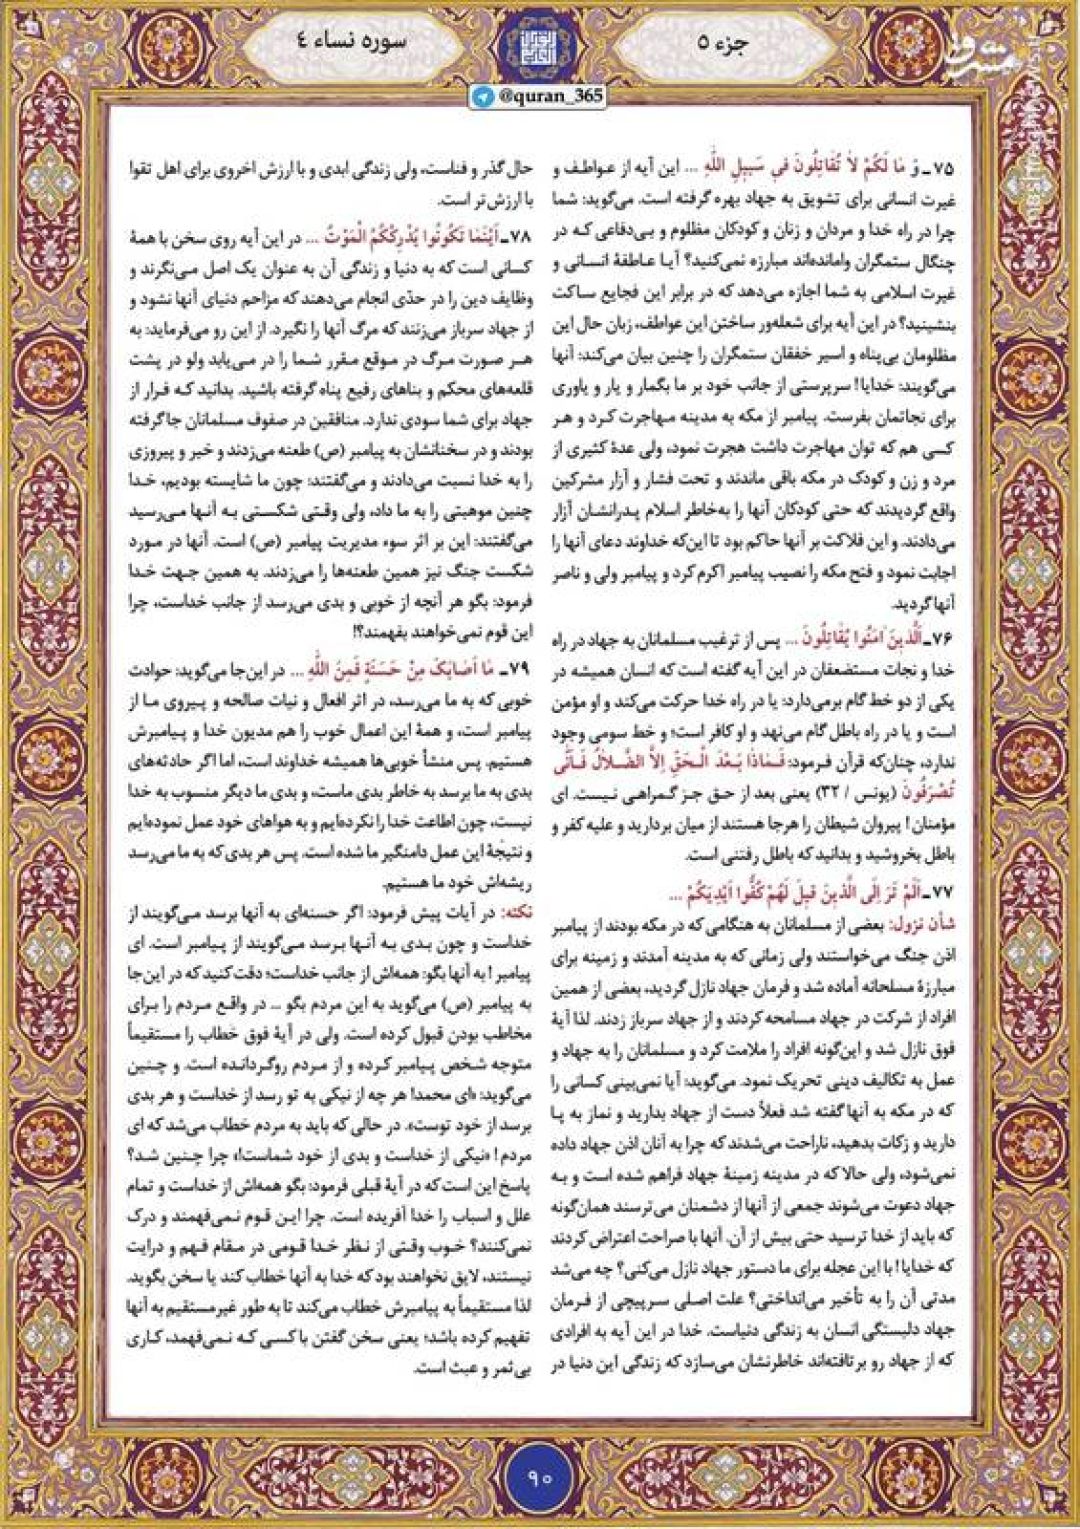 جزء ۵
سوره نساء ٤
@quran_365
۷۵ـ وَ مَا لَكُمْ لاَ تُقَاتِلُونَ فِي سَبِيلِ اللّهِ ... این آیه از عواطف و
غیرت انسانی برای تشویق به جهاد بهره گرفته است. می‌گوید: شما
چرا در راه خدا و مردان و زنان و کودکان مظلوم و بی‌دفاعی که در
چنگال ستمگران وامانده‌اند مبارزه نمی‌کنید؟ آیا عاطفهٔ انسانی و
غیرت اسلامی به شما اجازه می‌دهد که در برابر این فجایع ساکت
بنشینید؟ در این آیه برای شعله‌ور ساختن این عواطف، زبان حال این
مظلومان بی‌پناه و اسیر خفقان ستمگران را چنین بیان می‌کند: آنها
می‌گویند: خدایا! سرپرستی از جانب خود بر ما بگمار و یار و یاوری
برای نجاتمان بفرست. پیامبر از مکه به مدینه مهاجرت کرد و هر
کسی هم که توان مهاجرت داشت هجرت نمود، ولی عدهٔ کثیری از
مرد و زن و کودک در مکه باقی ماندند و تحت فشار و آزار مشرکین
واقع گردیدند که حتی کودکان آنها را به‌خاطر اسلام پدرانشان آزار
می‌دادند. و این فلاکت بر آنها حاکم بود تا این‌که خداوند دعای آنها را
اجابت نمود و فتح مکه را نصیب پیامبر اکرم کرد و پیامبر ولی و ناصر
آنها گردید.
۷۶ـ اَلَّذِينَ آمَنُوا يُقَاتِلُونَ ... پس از ترغیب مسلمانان به جهاد در راه
خدا و نجات مستضعفان در این آیه گفته است که انسان همیشه در
یکی از دو خط گام برمی‌دارد: یا در راه خدا حرکت می‌کند و او مؤمن
است و یا در راه باطل گام می‌نهد و او کافر است؛ و خط سومی وجود
ندارد، چنان‌که قرآن فرمود: فَمَاذَا بَعْدَ الْحَقِّ اِلاَّ الضَّلاَلُ فَأَنَّى
تُصْرَفُونَ (یونس / ۳۲) یعنی بعد از حق جز گمراهی نیست. ای
مؤمنان! پیروان شیطان را هرجا هستند از میان بردارید و علیه کفر و
باطل بخروشید و بدانید که باطل رفتنی است.
۷۷ـ اَلَمْ تَرَ اِلَى الَّذِينَ قِيلَ لَهُمْ كُفُّوا اَيْدِيَكُمْ ...
شأن نزول: بعضی از مسلمانان به هنگامی که در مکه بودند از پیامبر
اذن جنگ می‌خواستند ولی زمانی که به مدینه آمدند و زمینه برای
مبارزهٔ مسلحانه آماده شد و فرمان جهاد نازل گردید، بعضی از همین
افراد از شرکت در جهاد مسامحه کردند و از جهاد سرباز زدند. لذا آیهٔ
فوق نازل شد و این‌گونه افراد را ملامت کرد و مسلمانان را به جهاد و
عمل به تکالیف دینی تحریک نمود. می‌گوید: آیا نمی‌بینی کسانی را
که در مکه به آنها گفته شد فعلاً دست از جهاد بدارید و نماز به پا
دارید و زکات بدهید، ناراحت می‌شدند که چرا به آنان اذن جهاد داده
نمی‌شود، ولی حالا که در مدینه زمینهٔ جهاد فراهم شده است و به
جهاد دعوت می‌شوند جمعی از آنها از دشمنان می‌ترسند همان‌گونه
که باید از خدا ترسید حتی بیش از آن. آنها با صراحت اعتراض کردند
که خدایا! با این عجله برای ما دستور جهاد نازل می‌کنی؟ چه می‌شد
مدتی آن را به تأخیر می‌انداختی؟ علت اصلی سرپیچی از فرمان
جهاد دلبستگی انسان به زندگی دنیاست. خدا در این آیه به افرادی
که از جهاد رو برتافته‌اند خاطرنشان می‌سازد که زندگی این دنیا در
حال گذر و فناست، ولی زندگی ابدی و با ارزش اخروی برای اهل تقوا
با ارزش‌تر است.
۷۸ـ اَيْنَمَا تَكُونُوا يُدْرِكْكُمُ الْمَوْتُ ... در این آیه روی سخن با همهٔ
کسانی است که به دنیا و زندگی آن به عنوان یک اصل می‌نگرند و
وظایف دین را در حدّی انجام می‌دهند که مزاحم دنیای آنها نشود و
از جهاد سرباز می‌زنند که مرگ آنها را نگیرد. از این رو می‌فرماید: به
هر صورت مرگ در موقع مقرر شما را در می‌یابد ولو در پشت
قلعه‌های محکم و بناهای رفیع پناه گرفته باشید. بدانید که فرار از
جهاد برای شما سودی ندارد. منافقین در صفوف مسلمانان جا گرفته
بودند و در سخنانشان به پیامبر (ص) طعنه می‌زدند و خیر و پیروزی
را به خدا نسبت می‌دادند و می‌گفتند: چون ما شایسته بودیم، خدا
چنین موهبتی را به ما داد، ولی وقتی شکستی به آنها می‌رسید
می‌گفتند: این بر اثر سوء مدیریت پیامبر (ص) است. آنها در مورد
شکست جنگ نیز همین طعنه‌ها را می‌زدند. به همین جهت خدا
فرمود: بگو هر آنچه از خوبی و بدی می‌رسد از جانب خداست، چرا
این قوم نمی‌خواهند بفهمند؟!
۷۹ـ مَا اَصَابَكَ مِنْ حَسَنَةٍ فَمِنَ اللّهِ ... در این‌جا می‌گوید: حوادث
خوبی که به ما می‌رسد، در اثر افعال و نیات صالحه و پیروی ما از
پیامبر است، و همهٔ این اعمال خوب را هم مدیون خدا و پیامبرش
هستیم. پس منشأ خوبی‌ها همیشه خداوند است، اما اگر حادثه‌های
بدی به ما برسد به خاطر بدی ماست، و بدی ما دیگر منسوب به خدا
نیست، چون اطاعت خدا را نکرده‌ایم و به هواهای خود عمل نموده‌ایم
و نتیجهٔ این عمل دامنگیر ما شده است. پس هر بدی که به ما می‌رسد
ریشه‌اش خود ما هستیم.
نکته: در آیات پیش فرمود: اگر حسنه‌ای به آنها برسد می‌گویند از
خداست و چون بدی به آنها برسد می‌گویند از پیامبر است. ای
پیامبر! به آنها بگو: همه‌اش از جانب خداست؛ دقت کنید که در این‌جا
به پیامبر (ص) می‌گوید به این مردم بگو ... در واقع مردم را برای
مخاطب بودن قبول کرده است. ولی در آیهٔ فوق خطاب را مستقیماً
متوجه شخص پیامبر کرده و از مردم روگردانده است. و چنین
می‌گوید: «ای محمد! هر چه از نیکی به تو رسد از خداست و هر بدی
برسد از خود توست». در حالی که باید به مردم خطاب می‌شد که ای
مردم! «نیکی از خداست و بدی از خود شماست!» چرا چنین شد؟
پاسخ این است که در آیهٔ قبلی فرمود: بگو همه‌اش از خداست و تمام
علل و اسباب را خدا آفریده است. چرا این قوم نمی‌فهمند و درک
نمی‌کنند؟ خوب وقتی از نظر خدا قومی در مقام فهم و درایت
نیستند، لایق نخواهند بود که خدا به آنها خطاب کند یا سخن بگوید.
لذا مستقیماً به پیامبرش خطاب می‌کند تا به طور غیرمستقیم به آنها
تفهیم کرده باشد؛ یعنی سخن گفتن با کسی که نمی‌فهمد، کاری
بی‌ثمر و عبث است.
۹۰